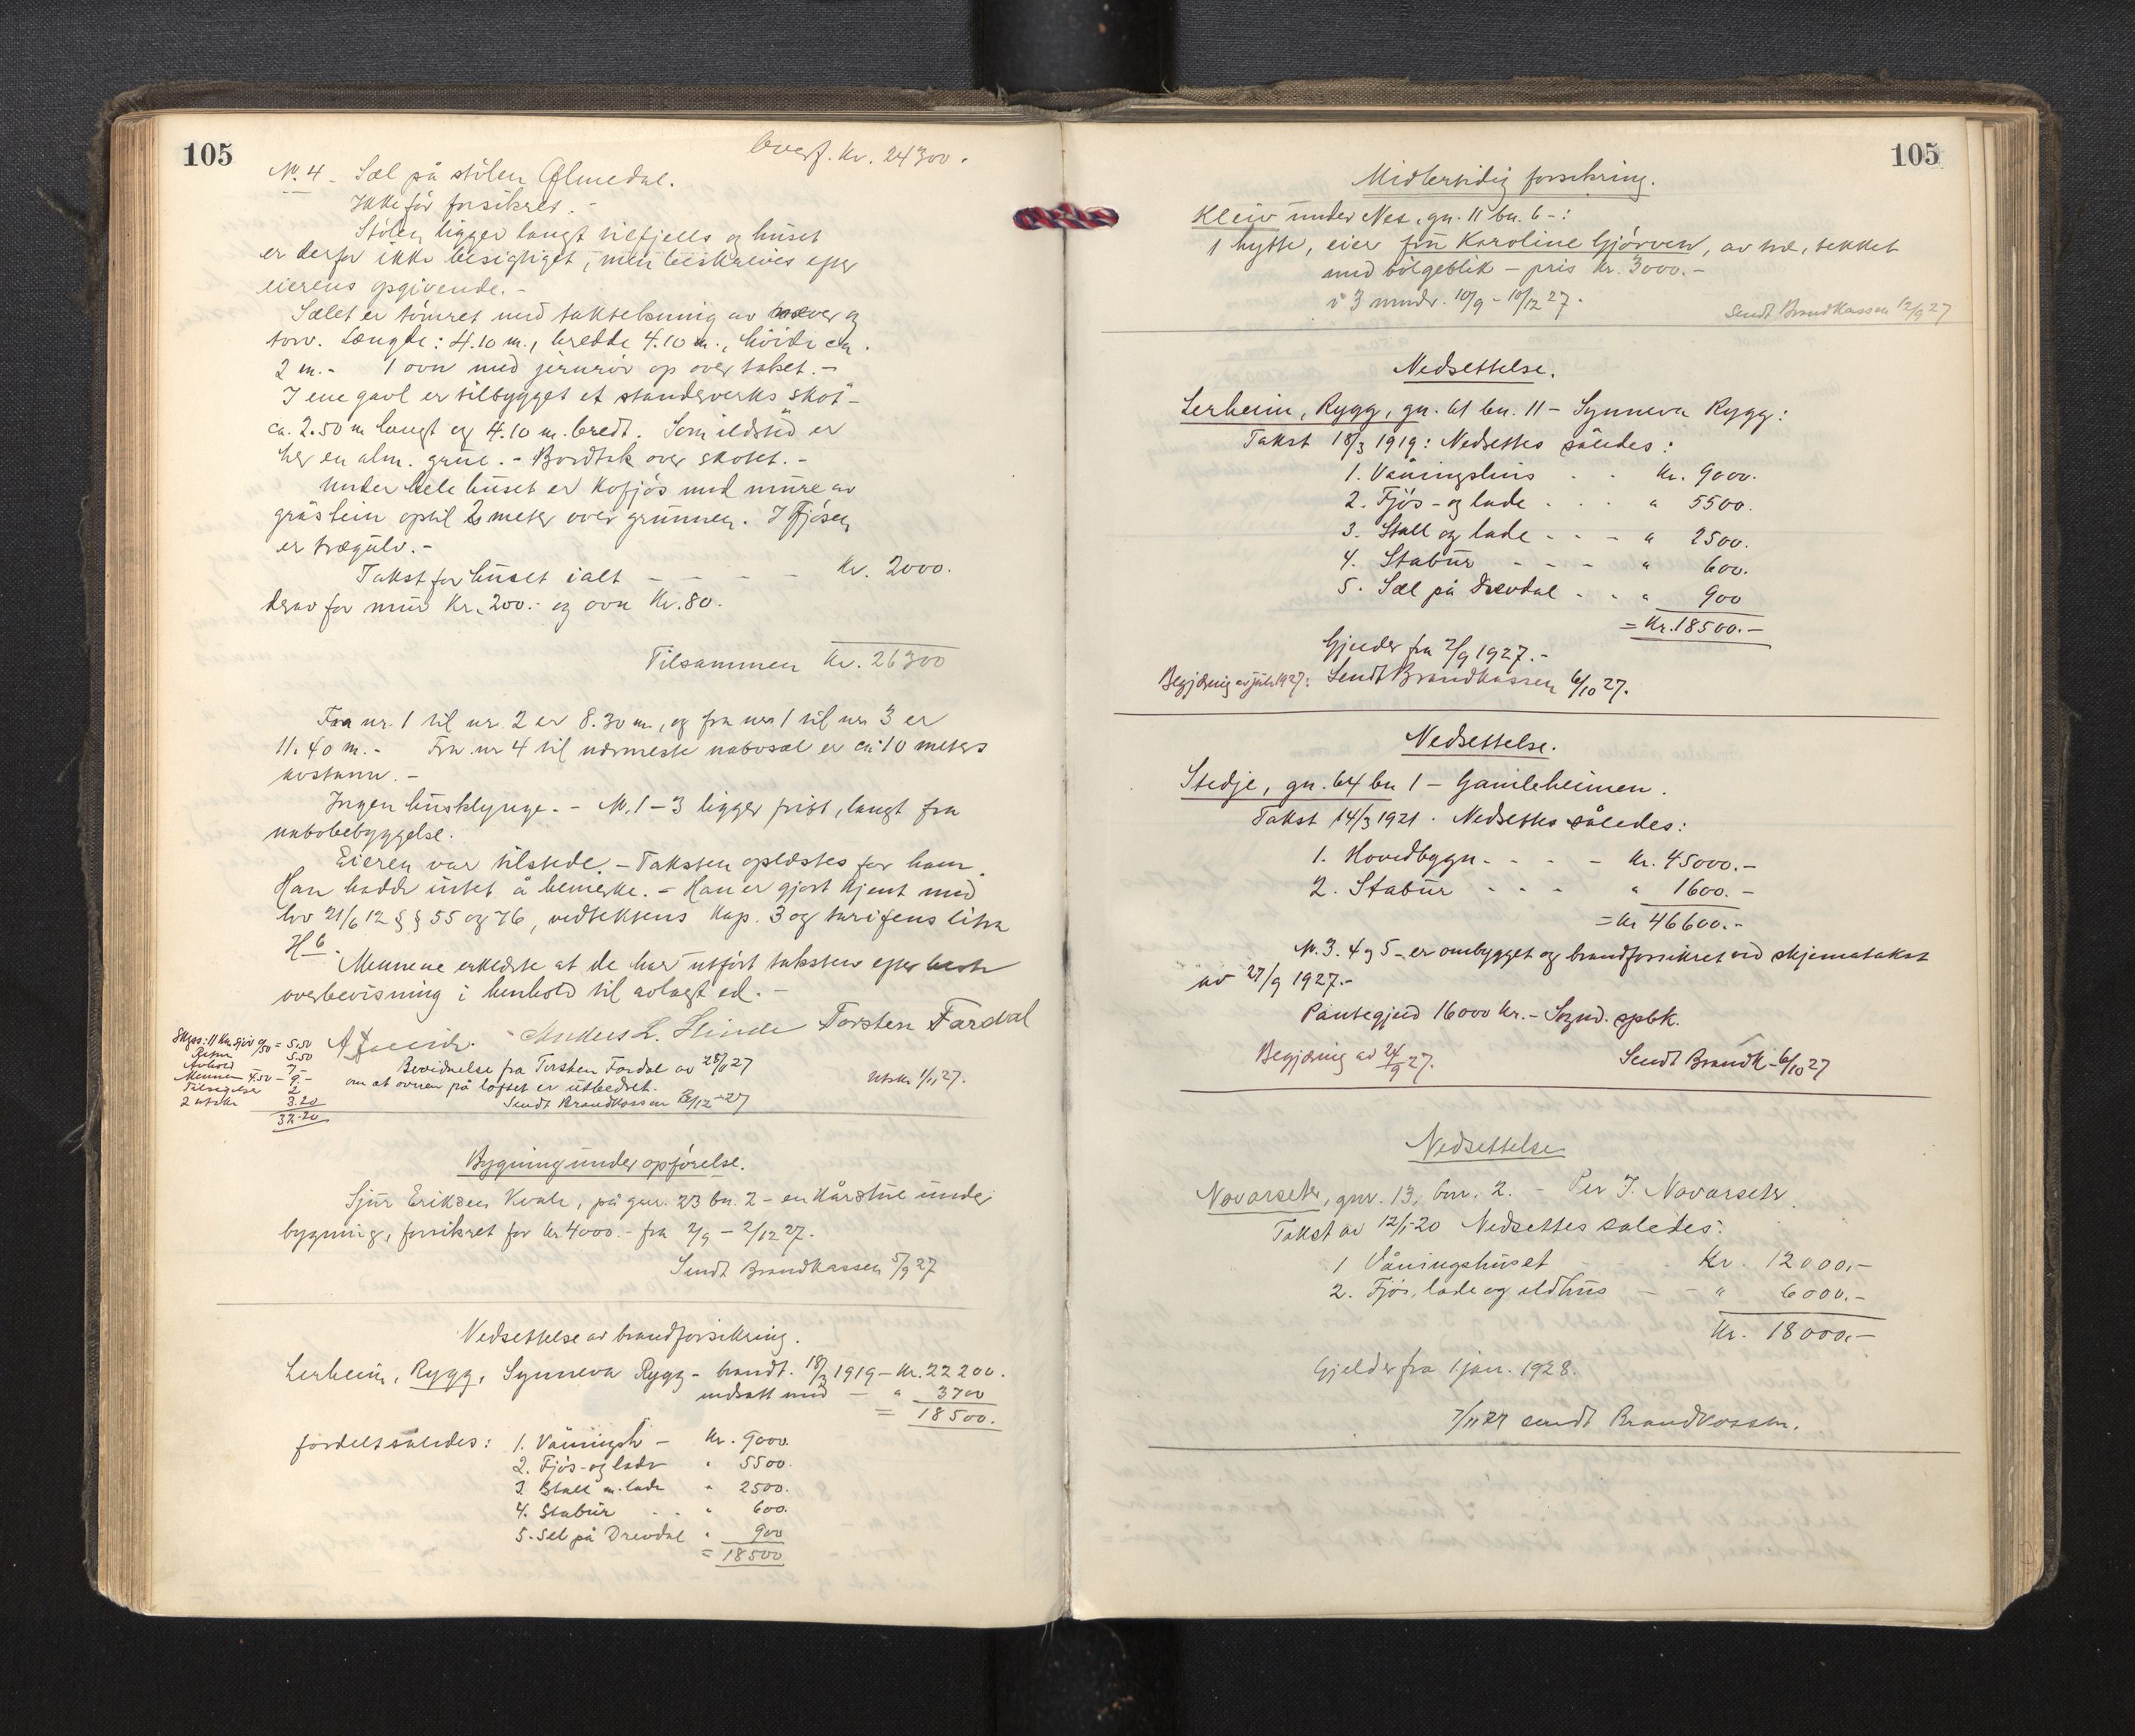 105
Overf. Kr. 24300.
Nr. 4. Sæl på stölen Ölmedal.
Ikke för forsikret. -
Stölen ligger langt tilfjells og huset
er derfor ikke besigtiget, men beskrives efter
eierens opgivende. -
Sælet er tömret med taktekning av næver og
torv. Længde: 4.10 m., bredde 4.10 m., höide ca.
2 m. - 1 ovn med jernrör op over taket. -
I ene gavl er tilbygget et standerverks skot -
ca. 2.50 m langt og 4.10 m. bredt. Som ildsted er
her en alm. grue. - Bordtak over skotet. -
Under hele huset er kofjös med mure av
gråstein optil 2 meter over grunnen. I fjösen
er trægulv. -
Takst for huset ialt - - - - Kr. 2000.
derav for mur Kr. 200.- og ovn Kr. 80.
Tilsammen Kr. 26300
Fra nr. 1 til nr. 2 er 8.30 m., og fra nr 1 til nr 3 er
11.40 m. - Fra nr 4 til nærmeste nabosæl er ca 10 meters
avstann. -
Ingen husklynge. - Nr. 1-3 ligger frist, langt fra
nabobebyggelse.
Eieren var tilstede. - Taksten oplæstes for ham.
Han hadde intet å bemerke. - Han er gjort kjent med
lov 21/6 12 § § 55 og 76, vedtektens Kap. 3 og tarifens litra
H 6.
Mennene erklærte at de har utfört taksten efter beste
overbevisning i henhold til avlagt ed. -
Anders L. Slinde Torsten Fardal
Skyss: 11 km. = 5.50
Retur 5.50
Avhold 7.-
Mennene 4.50 - 9.-
Tilsigelse 2
2 utskr 3.20
32.20
Bevidnelse fra Torsten Fardal av 28/11 27
om at ovnen på loftet er utbedret.
Sendt Brandkassen /12-27
Utskr. 1/11 27.
Bygning under opförelse.
Sjur Eriksen Kvale, på gnr. 23 bn. 2 - en kårstue under
bygning, forsikret for kr. 4000.- fra 2/9 - 2/12 27.
Sendt Brandkassen 5/9 27
Nedsettelse av brandforsikring.
Lerheim, Rygg, Synneva Rygg - brandt. 18/3 1919 - Kr. 22200.
nedsatt med - " 3700
= 18500.
fordelt således: 1. Våningsh - Kr. 9000.
2. Fjös- og lade " 5500.
3. Stall m. lade " 2500.
4. Stabur . . " 600.
5. Sel på Drevdal " 900
= 18500
105
Midlertidig forsikring.
Kleiv under Nes, gn. 11 bn. 6 -:
1 hytte, eier frú Karoline Gjörven, av tre, tekket
med bölgeblik - pris Kr. 3000.-
i 3 mndr. 10/9 - 10/12 27.
Sendt Brandkassen 12/9 27
Nedsettelse.
Lerheim, Rygg, gn. 61 bn. 11 - Synneva Rygg:
Takst 18/3 1919: Nedsettes således:
1. Våningshus . . Kr. 9000.
2. Fjös- og lade . . . " 5500.
3. Stall og lade - - - " 2500.
4. Stabur - - - - " 600.
5. Sæl på Drevdal - - " 900
= Kr. 18500.-
Gjelder fra 2/9 1927.-
Begjæring av juli 1927: Sendt Brandkassen 6/10 27.
Nedsettelse.
Stedje, gn. 64 bn 1 - Gamleheimen.
Takst 14/3 1921. Nedsettes således:
1. Hovedbygn. - - - - Kr. 45000.-
2. Stabur - - - " 1600.-
= Kr 46600.-
Nr. 3. 4 og 5 - er ombygget og brandforsikret ved skjematakst
av 27/9 1927.-
Pantegjeld 16000 Kr. - Sognd. spbk.
Begjæring av 24/9 27.
Sendt Brandk - 6/10 27
Nedsettelse
Navarseter, gnr. 13, bnr. 2. - Per J. Navarseter
Takst av 12/1-20 Nedsettes således:
1 Våningshuset Kr. 12000.-
2. Fjös, lade og eldhus - - " 6000.-
Kr. 18000.-
Gjelder fra 1 jan. 1928.
7/11 27 sendt Brandkassen.